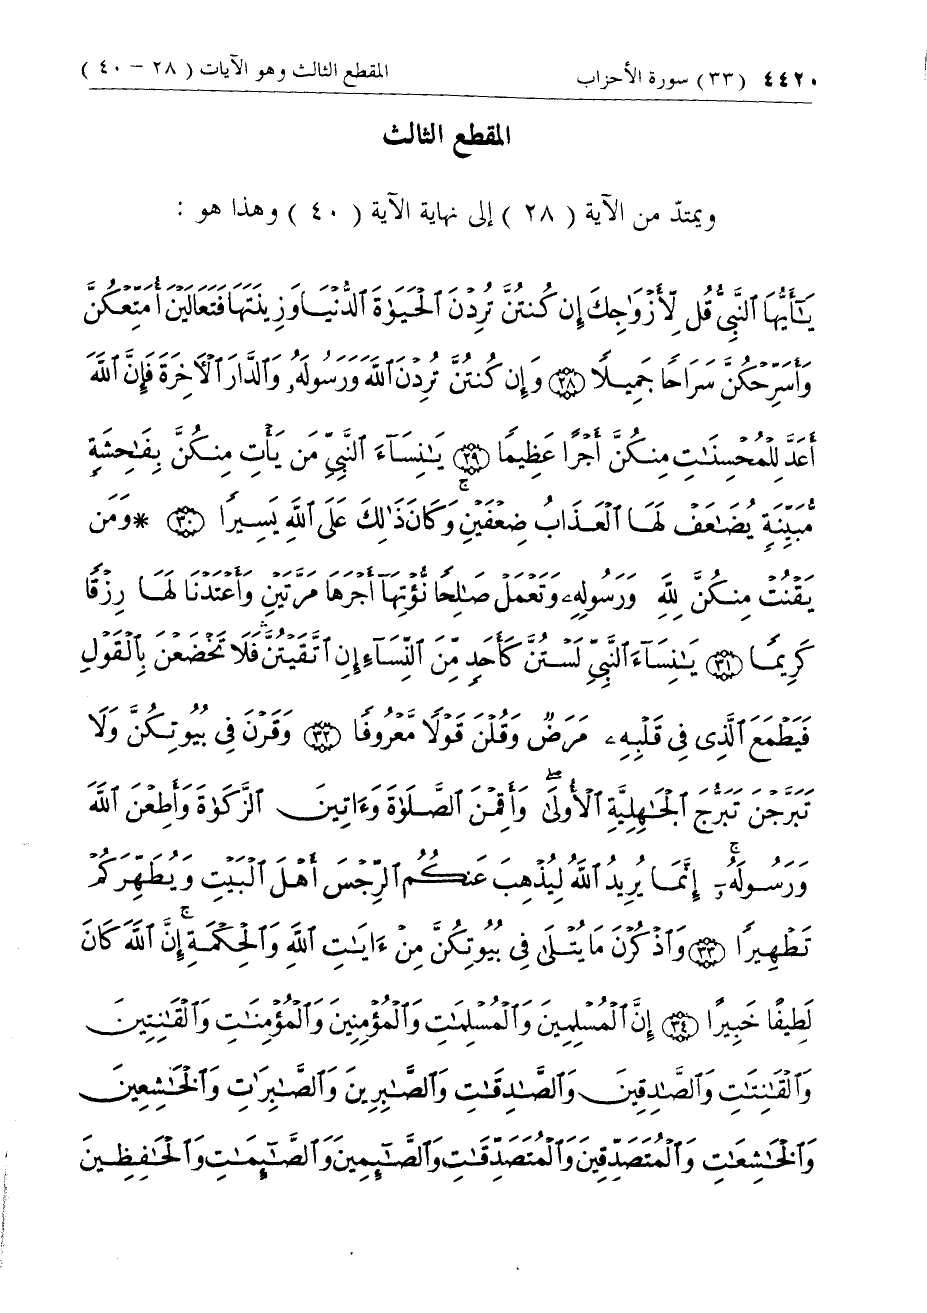 ٤٤٢٠ (٣٣) سورة الأحزاب المقطع الثالث وهو الآيات ( ٢٨ – ٤٠ )
المقطع الثالث
ويمتدّ من الآية ( ٢٨ ) إلى نهاية الآية ( ٤٠ ) وهذا هو :
يَٰٓأَيُّهَا ٱلنَّبِىُّ قُل لِّأَزْوَٰجِكَ إِن كُنتُنَّ تُرِدْنَ ٱلْحَيَوٰةَ ٱلدُّنْيَا وَزِينَتَهَا فَتَعَالَيْنَ أُمَتِّعْكُنَّ
وَأُسَرِّحْكُنَّ سَرَاحًا جَمِيلًا ﴿٢٨﴾ وَإِن كُنتُنَّ تُرِدْنَ ٱللَّهَ وَرَسُولَهُۥ وَٱلدَّارَ ٱلْأَخِرَةَ فَإِنَّ ٱللَّهَ
أَعَدَّ لِلْمُحْسِنَٰتِ مِنكُنَّ أَجْرًا عَظِيمًا ﴿٢٩﴾ يَٰنِسَآءَ ٱلنَّبِىِّ مَن يَأْتِ مِنكُنَّ بِفَٰحِشَةٍ
مُّبَيِّنَةٍ يُضَٰعَفْ لَهَا ٱلْعَذَابُ ضِعْفَيْنِ ۚ وَكَانَ ذَٰلِكَ عَلَى ٱللَّهِ يَسِيرًا ﴿٣٠﴾ * وَمَن
يَقْنُتْ مِنكُنَّ لِلَّهِ وَرَسُولِهِۦ وَتَعْمَلْ صَٰلِحًا نُّؤْتِهَآ أَجْرَهَا مَرَّتَيْنِ وَأَعْتَدْنَا لَهَا رِزْقًا
كَرِيمًا ﴿٣١﴾ يَٰنِسَآءَ ٱلنَّبِىِّ لَسْتُنَّ كَأَحَدٍ مِّنَ ٱلنِّسَآءِ إِنِ ٱتَّقَيْتُنَّ فَلَا تَخْضَعْنَ بِٱلْقَوْلِ
فَيَطْمَعَ ٱلَّذِى فِى قَلْبِهِۦ مَرَضٌ وَقُلْنَ قَوْلًا مَّعْرُوفًا ﴿٣٢﴾ وَقَرْنَ فِى بُيُوتِكُنَّ وَلَا
تَبَرَّجْنَ تَبَرُّجَ ٱلْجَٰهِلِيَّةِ ٱلْأُولَىٰ ۖ وَأَقِمْنَ ٱلصَّلَوٰةَ وَءَاتِينَ ٱلزَّكَوٰةَ وَأَطِعْنَ ٱللَّهَ
وَرَسُولَهُۥٓ ۚ إِنَّمَا يُرِيدُ ٱللَّهُ لِيُذْهِبَ عَنكُمُ ٱلرِّجْسَ أَهْلَ ٱلْبَيْتِ وَيُطَهِّرَكُمْ
تَطْهِيرًا ﴿٣٣﴾ وَٱذْكُرْنَ مَا يُتْلَىٰ فِى بُيُوتِكُنَّ مِنْ ءَايَٰتِ ٱللَّهِ وَٱلْحِكْمَةِ ۚ إِنَّ ٱللَّهَ كَانَ
لَطِيفًا خَبِيرًا ﴿٣٤﴾ إِنَّ ٱلْمُسْلِمِينَ وَٱلْمُسْلِمَٰتِ وَٱلْمُؤْمِنِينَ وَٱلْمُؤْمِنَٰتِ وَٱلْقَٰنِتِينَ
وَٱلْقَٰنِتَٰتِ وَٱلصَّٰدِقِينَ وَٱلصَّٰدِقَٰتِ وَٱلصَّٰبِرِينَ وَٱلصَّٰبِرَٰتِ وَٱلْخَٰشِعِينَ
وَٱلْخَٰشِعَٰتِ وَٱلْمُتَصَدِّقِينَ وَٱلْمُتَصَدِّقَٰتِ وَٱلصَّٰٓئِمِينَ وَٱلصَّٰٓئِمَٰتِ وَٱلْحَٰفِظِينَ